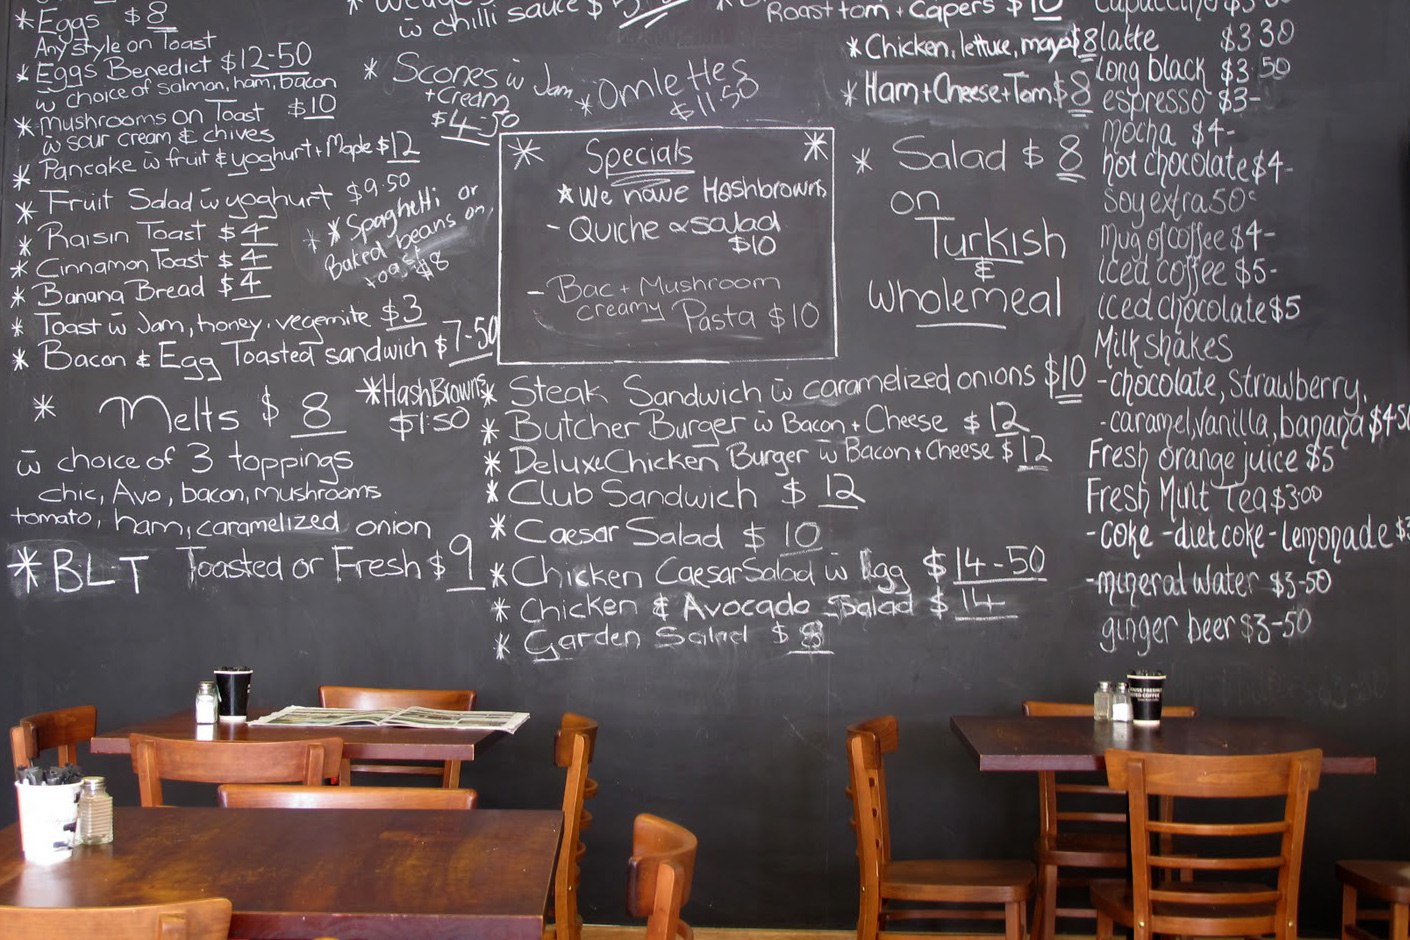 * Eggs $8
Any style on Toast
* Eggs Benedict $12-50
w̄ choice of salmon, ham, bacon
* Mushrooms on Toast $10
w̄ sour cream & chives
* Pancake w̄ fruit & yoghurt + Maple $12
* Fruit Salad w̄ yoghurt $9.50
* Raisin Toast $4
* Cinnamon Toast $4
* Banana Bread $4
* Toast w̄ Jam, honey, vegemite $3
* Bacon & Egg Toasted sandwich $7-50
* Spaghetti or
Baked beans on
toast $8
* HashBrowns
$1.50
* Melts $8
w̄ choice of 3 toppings
chic, Avo, bacon, mushrooms
tomato, ham, caramelized onion
* BLT Toasted or Fresh $9
w̄ chilli sauce $
* Scones w̄ Jam
+ Cream
$4-50
* Omlettes
$11.50
* Specials *
* We have Hashbrowns
- Quiche & salad
$10
- Bac + Mushroom
creamy Pasta $10
* Steak Sandwich w̄ caramelized onions $10
* Butcher Burger w̄ Bacon + Cheese $12
* Deluxe Chicken Burger w̄ Bacon + Cheese $12
* Club Sandwich $12
* Caesar Salad $10
* Chicken Caesar Salad w̄ Egg $14-50
* Chicken & Avocado Salad $14
* Garden Salad $8
Roast tom + Capers $10
* Chicken, lettuce, mayo $8
* Ham + Cheese + Tom $8
* Salad $8
on
Turkish
&
Wholemeal
Cappuccino
latte $3 30
long black $3 50
espresso $3-
Mocha $4-
hot chocolate $4-
Soy extra 50c
Mug of coffee $4-
Iced coffee $5-
Iced chocolate $5
Milkshakes
- chocolate, Strawberry,
- caramel, vanilla, banana $4-50
Fresh orange juice $5
Fresh Mint Tea $3.00
- coke - diet coke - Lemonade
- mineral water $3-50
ginger beer $3-50